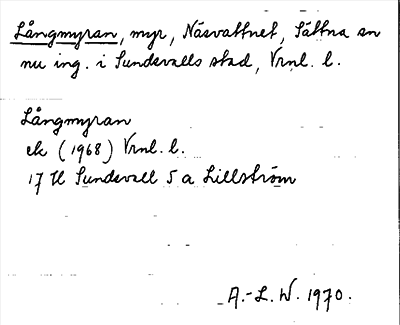 Långmyran, myr, Näsvattnet, Sättna sn
nu ing. i Sundsvalls stad, Vrnl. l.
Långmyran
ek (1968) Vrnl. l.
17 H Sundsvall 5 a Lillström
A.-L. W. 1970.